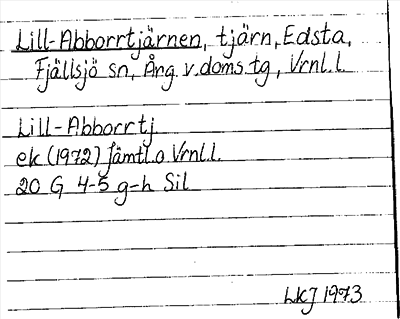 Lill-Abborrtjärnen, tjärn, Edsta,
Fjällsjö sn, Ång. v. doms. tg, Vrnl. l.
Lill-Abborrtj.
ek (1972) Jämtl. o Vrnl. l.
20 G 4-5 g-h Sil
LKJ 1973